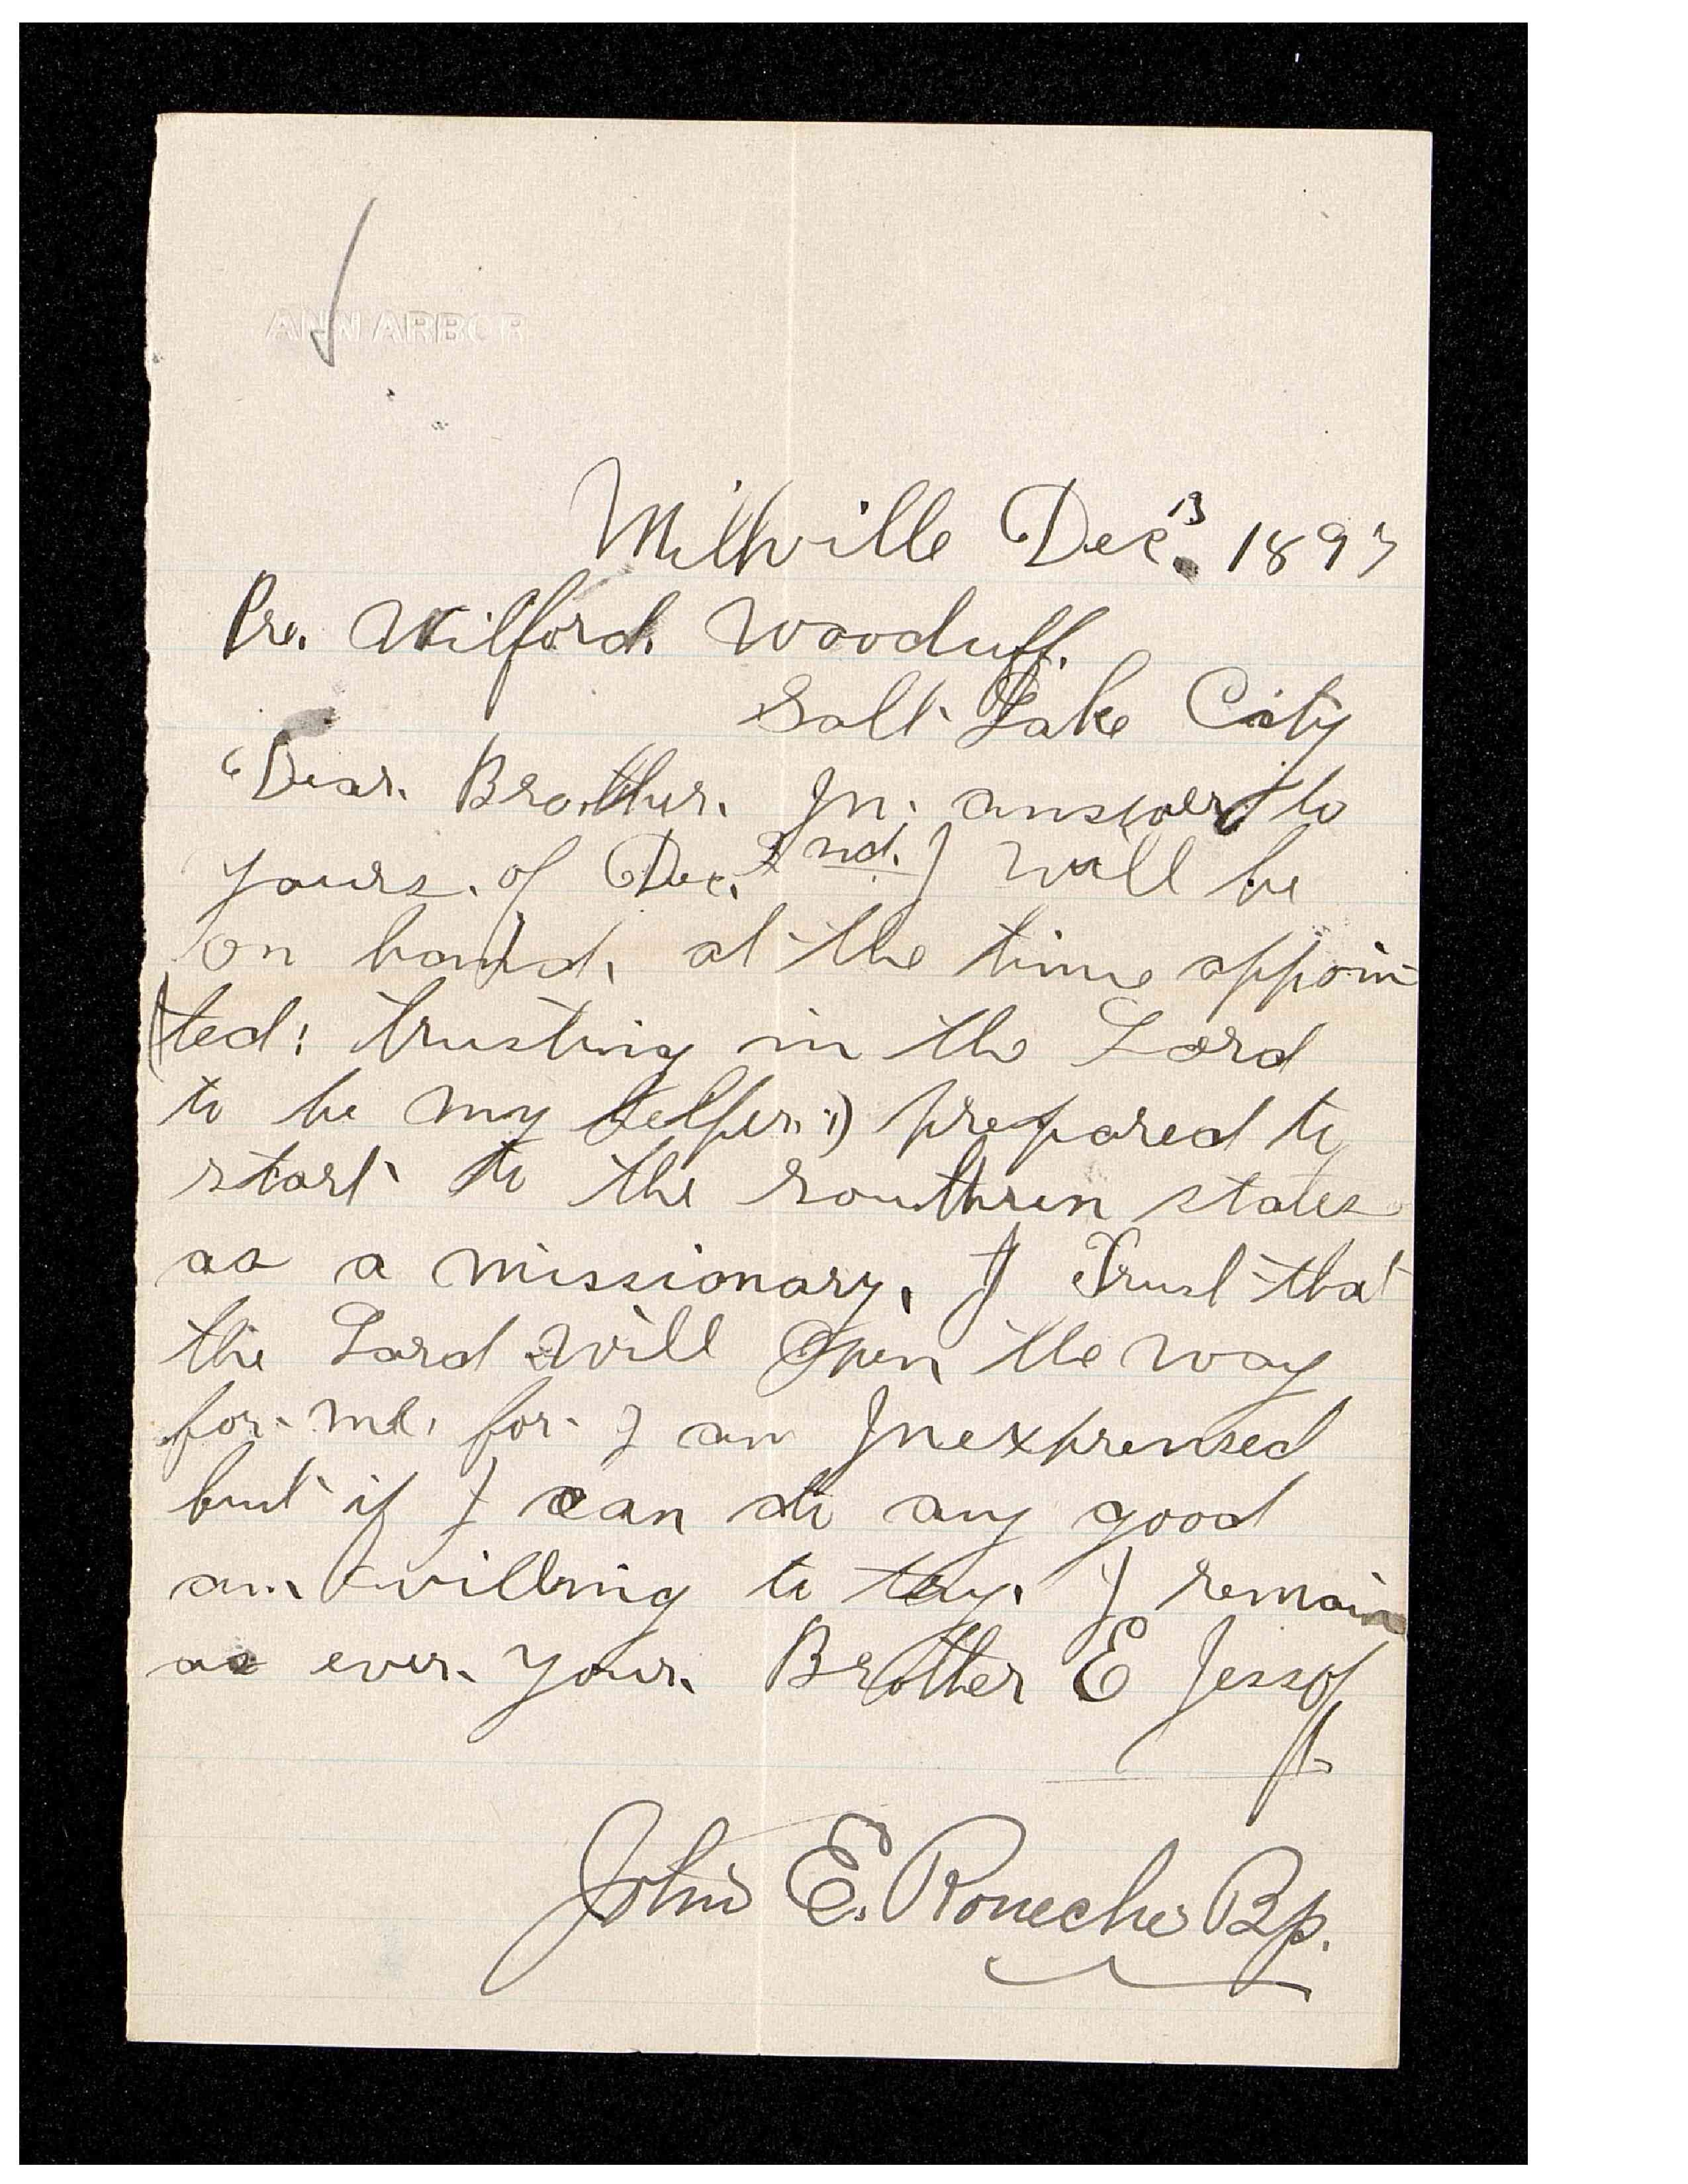 ANN ARBOR
Millville Dec. 13 1897
Pre. Wilford. Wooduff.
Salt Lake City
Dear. Brother. In answer to
yours. of Dec. 2nd. I will be
on hand. at the time appoin
(ted: trusting in the Lord
to be my helper:) prepared to
start to the southren states
as a missionary. I Trust that
the Lord will Open the way
for me. for I am Inexprensed
but if I can do any good
am willing to try. I remain
as ever. your. Brother E Jessop
John E. Roueche Bp.